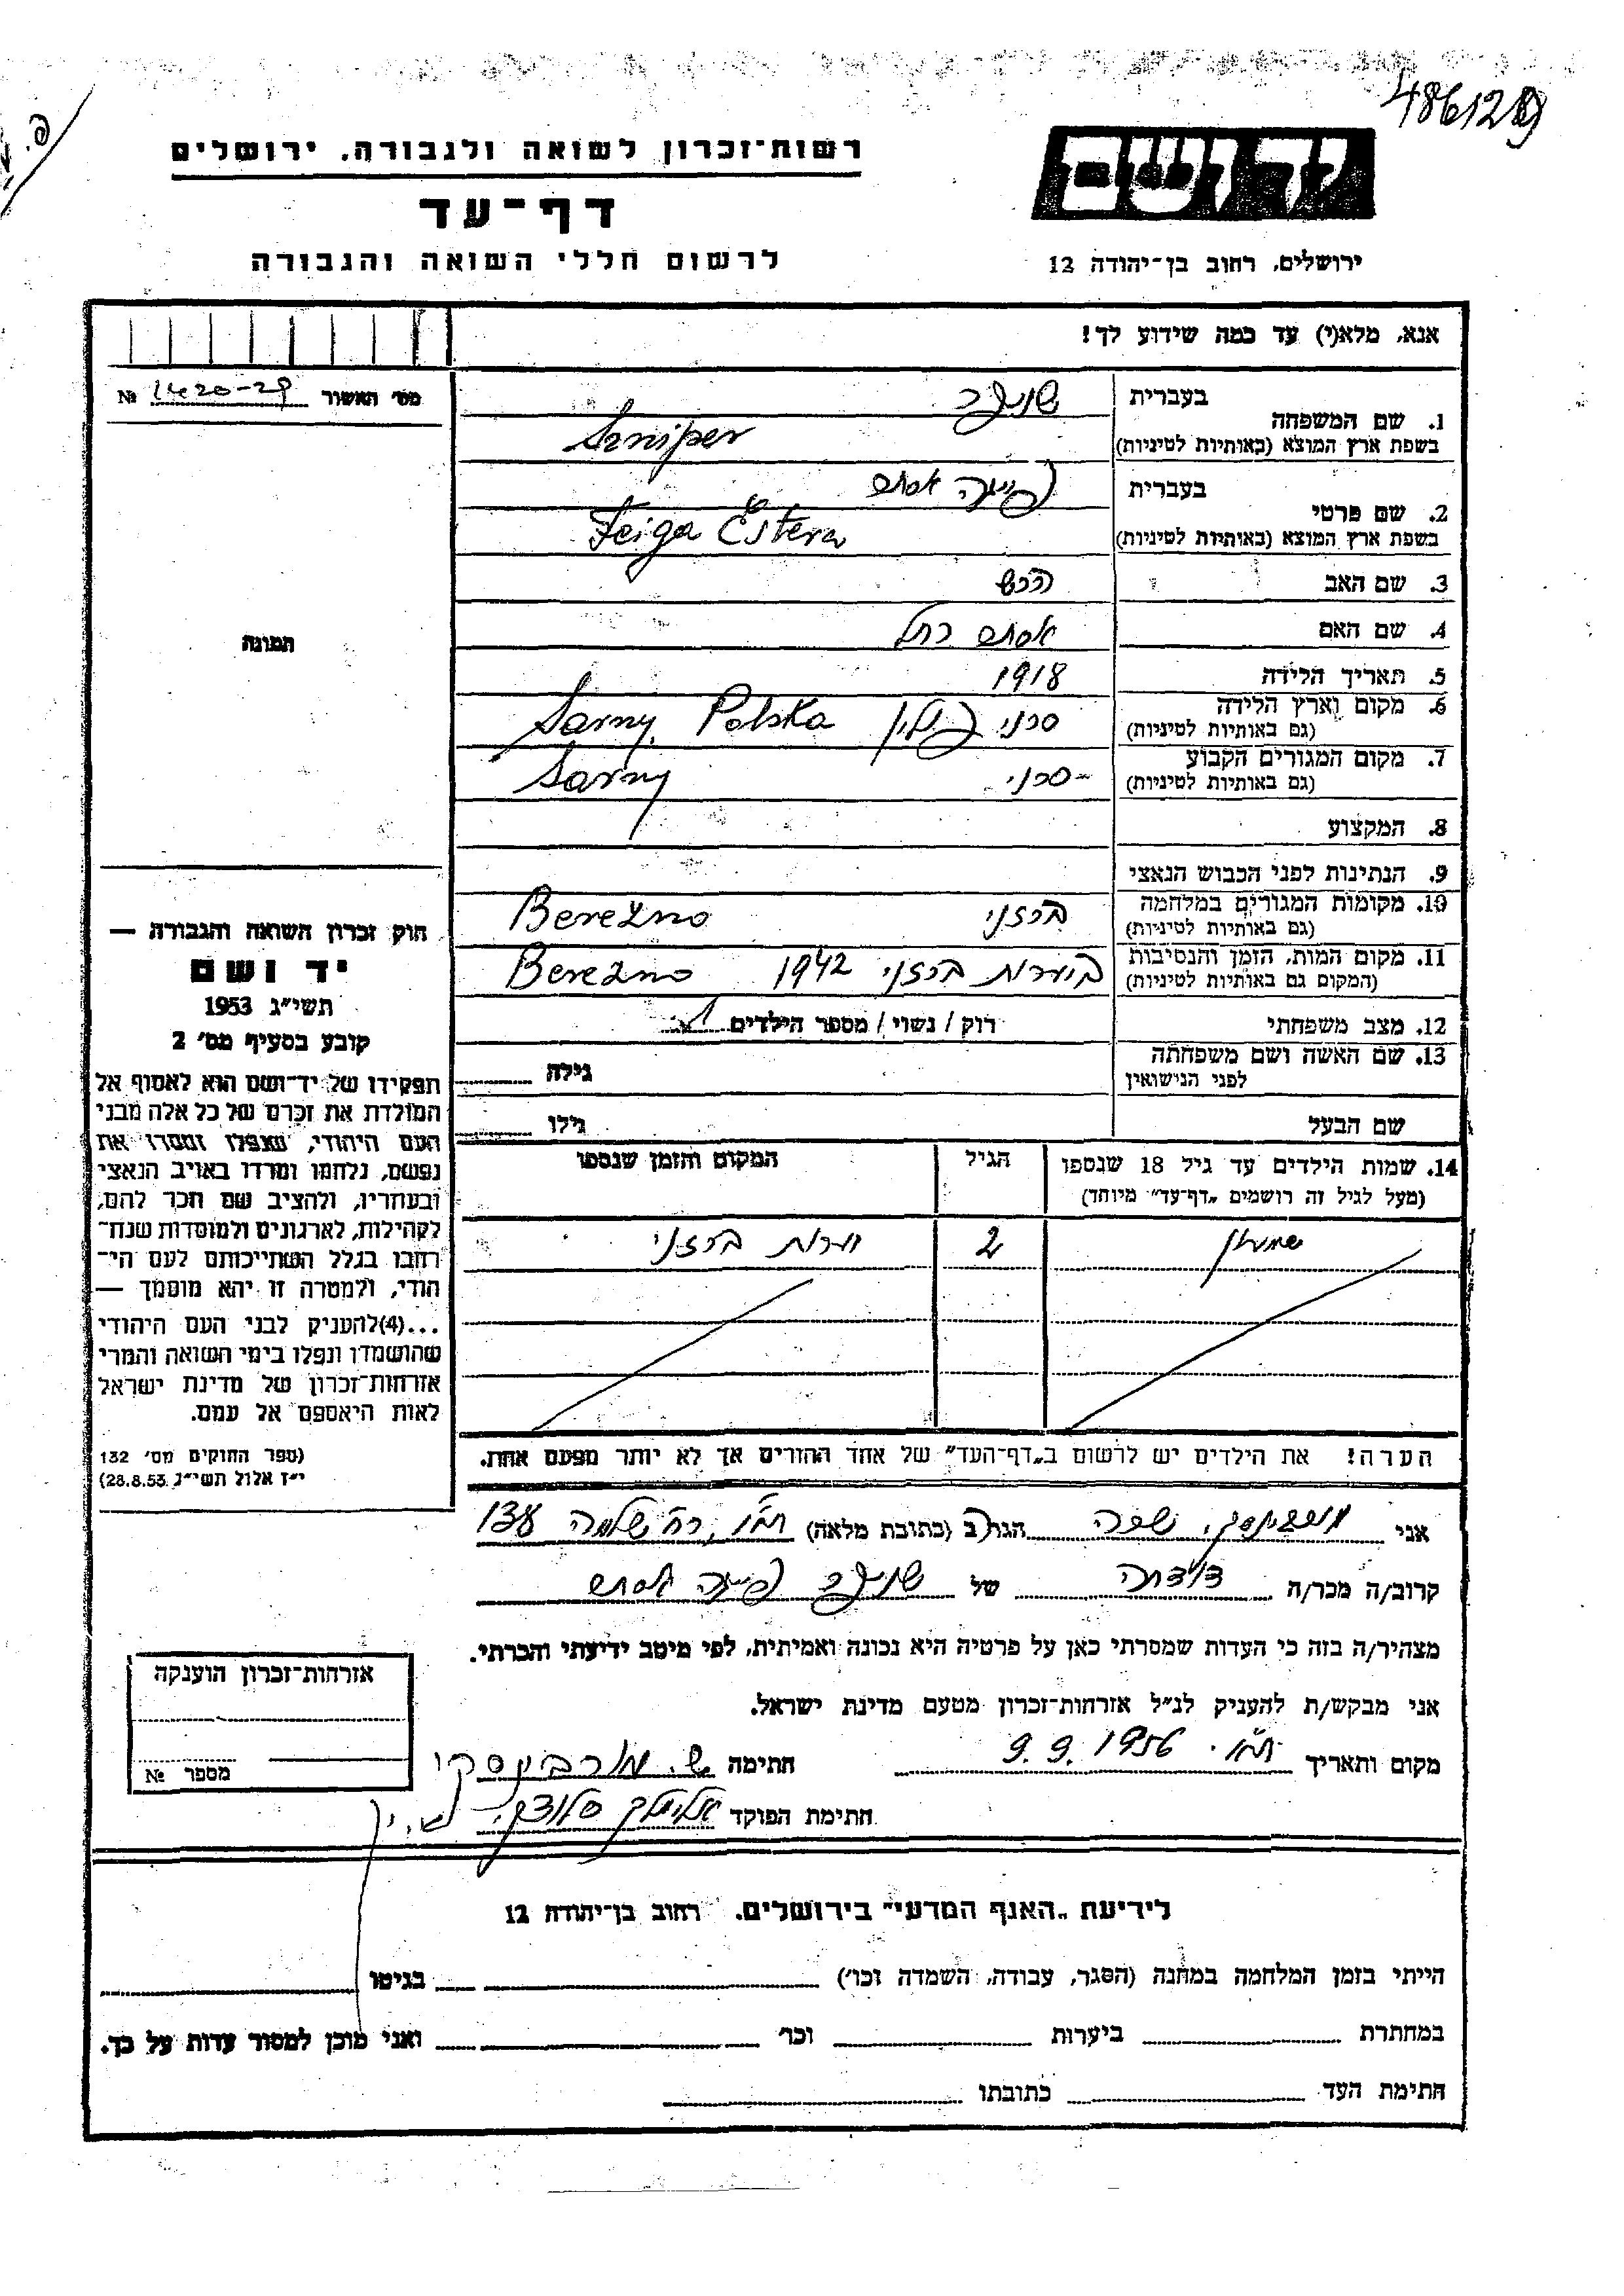 486128
רשות־זכרון לשואה ולגבורה, ירושלים
דף־עד
לרשום חללי השואה והגבורה
ידושם
ירושלים, רחוב בן־יהודה 12
אנא, מלא(י) עד כמה שידוע לך!
מס׳ האשור 1420-29 №
תמונה
1. שם המשפחה בעברית שניפר
בשפת ארץ המוצא (באותיות לטיניות) Szniper
2. שם פרטי בעברית פייגה אסתר
בשפת ארץ המוצא (באותיות לטיניות) Feiga Estera
3. שם האב הרש
4. שם האם אסתר רחל
5. תאריך הלידה 1918
6. מקום וארץ הלידה סרני פולין Sarny, Polska
(גם באותיות לטיניות)
7. מקום המגורים הקבוע סרני Sarny
(גם באותיות לטיניות)
8. המקצוע
9. הנתינות לפני הכבוש הנאצי
10. מקומות המגורים במלחמה ברזני Bereżno
(גם באותיות לטיניות)
11. מקום המות, הזמן והנסיבות ביערות ברזני 1942 Bereżno
(המקום גם באותיות לטיניות)
12. מצב משפחתי רווק / נשוי / מספר הילדים 1
13. שם האשה ושם משפחתה גילה
לפני הנישואין
שם הבעל גילו
14. שמות הילדים עד גיל 18 שנספו הגיל המקום והזמן שנספו
(מעל לגיל זה רושמים „דף־עד” מיוחד)
שמעון 2 יערות ברזני
הערה! את הילדים יש לרשום ב„דף־העד” של אחד ההורים אך לא יותר מפעם אחת.
חוק זכרון השואה והגבורה —
יד ושם
תשי״ג 1953
קובע בסעיף מס׳ 2
תפקידו של יד־ושם הוא לאסוף אל
המולדת את זכרם של כל אלה מבני
העם היהודי, שנפלו ומסרו את
נפשם, נלחמו ומרדו באויב הנאצי
ובעוזריו, ולהציב שם וזכר להם,
לקהילות, לארגונים ולמוסדות שנח־
רבו בגלל השתייכותם לעם הי־
הודי, ולמטרה זו יהא מוסמך —
...(4)להעניק לבני העם היהודי
שהושמדו ונפלו בימי השואה והמרי
אזרחות־זכרון של מדינת ישראל
לאות היאספם אל עמם.
(ספר החוקים מס׳ 132
י״ז אלול תשי״ג 28.8.53)
אני שפרה הגר/ה ב (כתובת מלאה) רח׳ שלמה
קרוב/ה מכר/ה דודתה של שניפר פייגה אסתר
מצהיר/ה בזה כי העדות שמסרתי כאן על פרטיה היא נכונה ואמיתית, לפי מיטב ידיעתי והכרתי.
אני מבקש/ת להעניק לנ״ל אזרחות־זכרון מטעם מדינת ישראל.
מקום ותאריך 9.9.1956 חתימה ש. מורבינסקי
חתימת הפוקד אלימלך
אזרחות־זכרון הוענקה
מספר №
לידיעת „האגף המדעי” בירושלים. רחוב בן־יהודה 12
הייתי בזמן המלחמה במחנה (הסגר, עבודה, השמדה וכו׳) בגיטו
במחתרת ביערות וכו׳ ואני מוכן למסור עדות על כך.
חתימת העד כתובתו